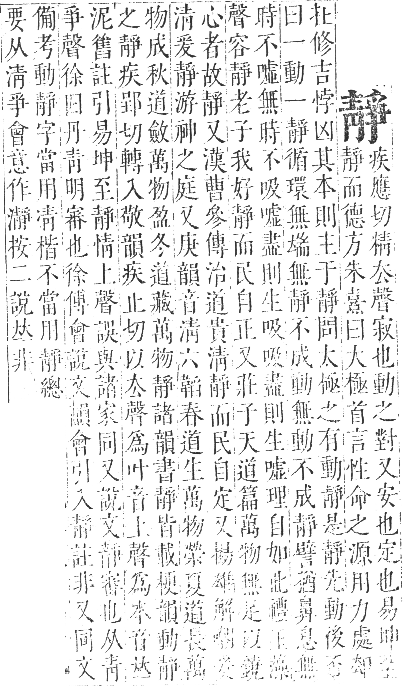 靜
疾應切情去聲寂也動之對又安也定也易坤至
靜而德方朱熹曰太極首言性命之源用力處却
在修吉悖凶其本則主于靜問太極之有動靜是靜先動後否
曰一動一靜循環無端無靜不成動無動不成靜譬猶鼻息無
時不噓無時不吸噓盡則生吸吸盡則生噓理自如此禮
聲容靜老子我好靜而民自正又莊子天道篇萬物無足以鐃
心者故靜又漢曹參傳治道貴清靜而民自定又揚雄解嘲爰
清爰靜游神之庭又庚韻音淸六韜春道生萬物榮夏道長萬
物成秋道斂萬物盈冬道藏萬物靜諸韻書靜皆載梗韻動靜
之靜疾郢切轉入敬韻疾正切以去聲爲叶音上聲爲本音𠀤
泥舊註引易坤至靜情上聲誤與諸家同又說文靜審也从青
爭聲徐曰丹青明審也徐傅會說文韻會引入靜註非又同文
備考動靜字當用凊楷不當用靜總
要从清爭會意作瀞按二說𠀤非